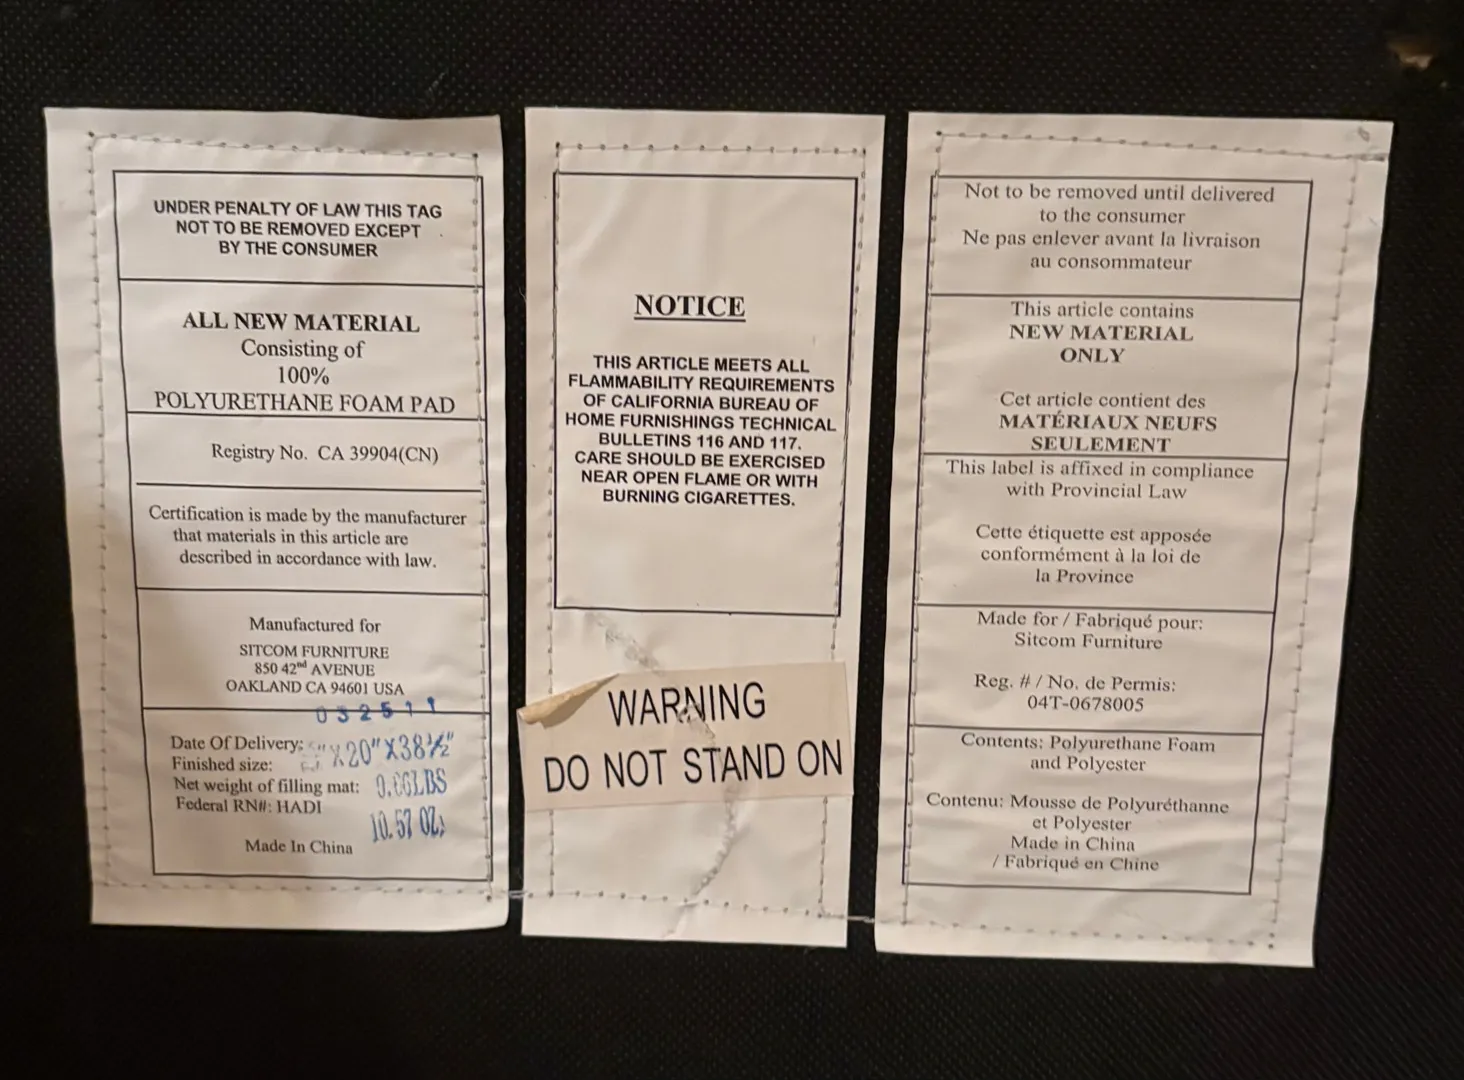 UNDER PENALTY OF LAW THIS TAG
NOT TO BE REMOVED EXCEPT
BY THE CONSUMER
ALL NEW MATERIAL
Consisting of
100%
POLYURETHANE FOAM PAD
Registry No. CA 39904(CN)
Certification is made by the manufacturer
that materials in this article are
described in accordance with law.
Manufactured for
SITCOM FURNITURE
850 42nd AVENUE
OAKLAND CA 94601 USA
032511
Date Of Delivery:
Finished size: X20"X38½"
Net weight of filling mat: 0.66LBS
Federal RN#: HADI
10.57 OZ
Made In China
NOTICE
THIS ARTICLE MEETS ALL
FLAMMABILITY REQUIREMENTS
OF CALIFORNIA BUREAU OF
HOME FURNISHINGS TECHNICAL
BULLETINS 116 AND 117.
CARE SHOULD BE EXERCISED
NEAR OPEN FLAME OR WITH
BURNING CIGARETTES.
WARNING
DO NOT STAND ON
Not to be removed until delivered
to the consumer
Ne pas enlever avant la livraison
au consommateur
This article contains
NEW MATERIAL
ONLY
Cet article contient des
MATÉRIAUX NEUFS
SEULEMENT
This label is affixed in compliance
with Provincial Law
Cette étiquette est apposée
conformément à la loi de
la Province
Made for / Fabriqué pour:
Sitcom Furniture
Reg. # / No. de Permis:
04T-0678005
Contents: Polyurethane Foam
and Polyester
Contenu: Mousse de Polyuréthanne
et Polyester
Made in China
/ Fabriqué en Chine